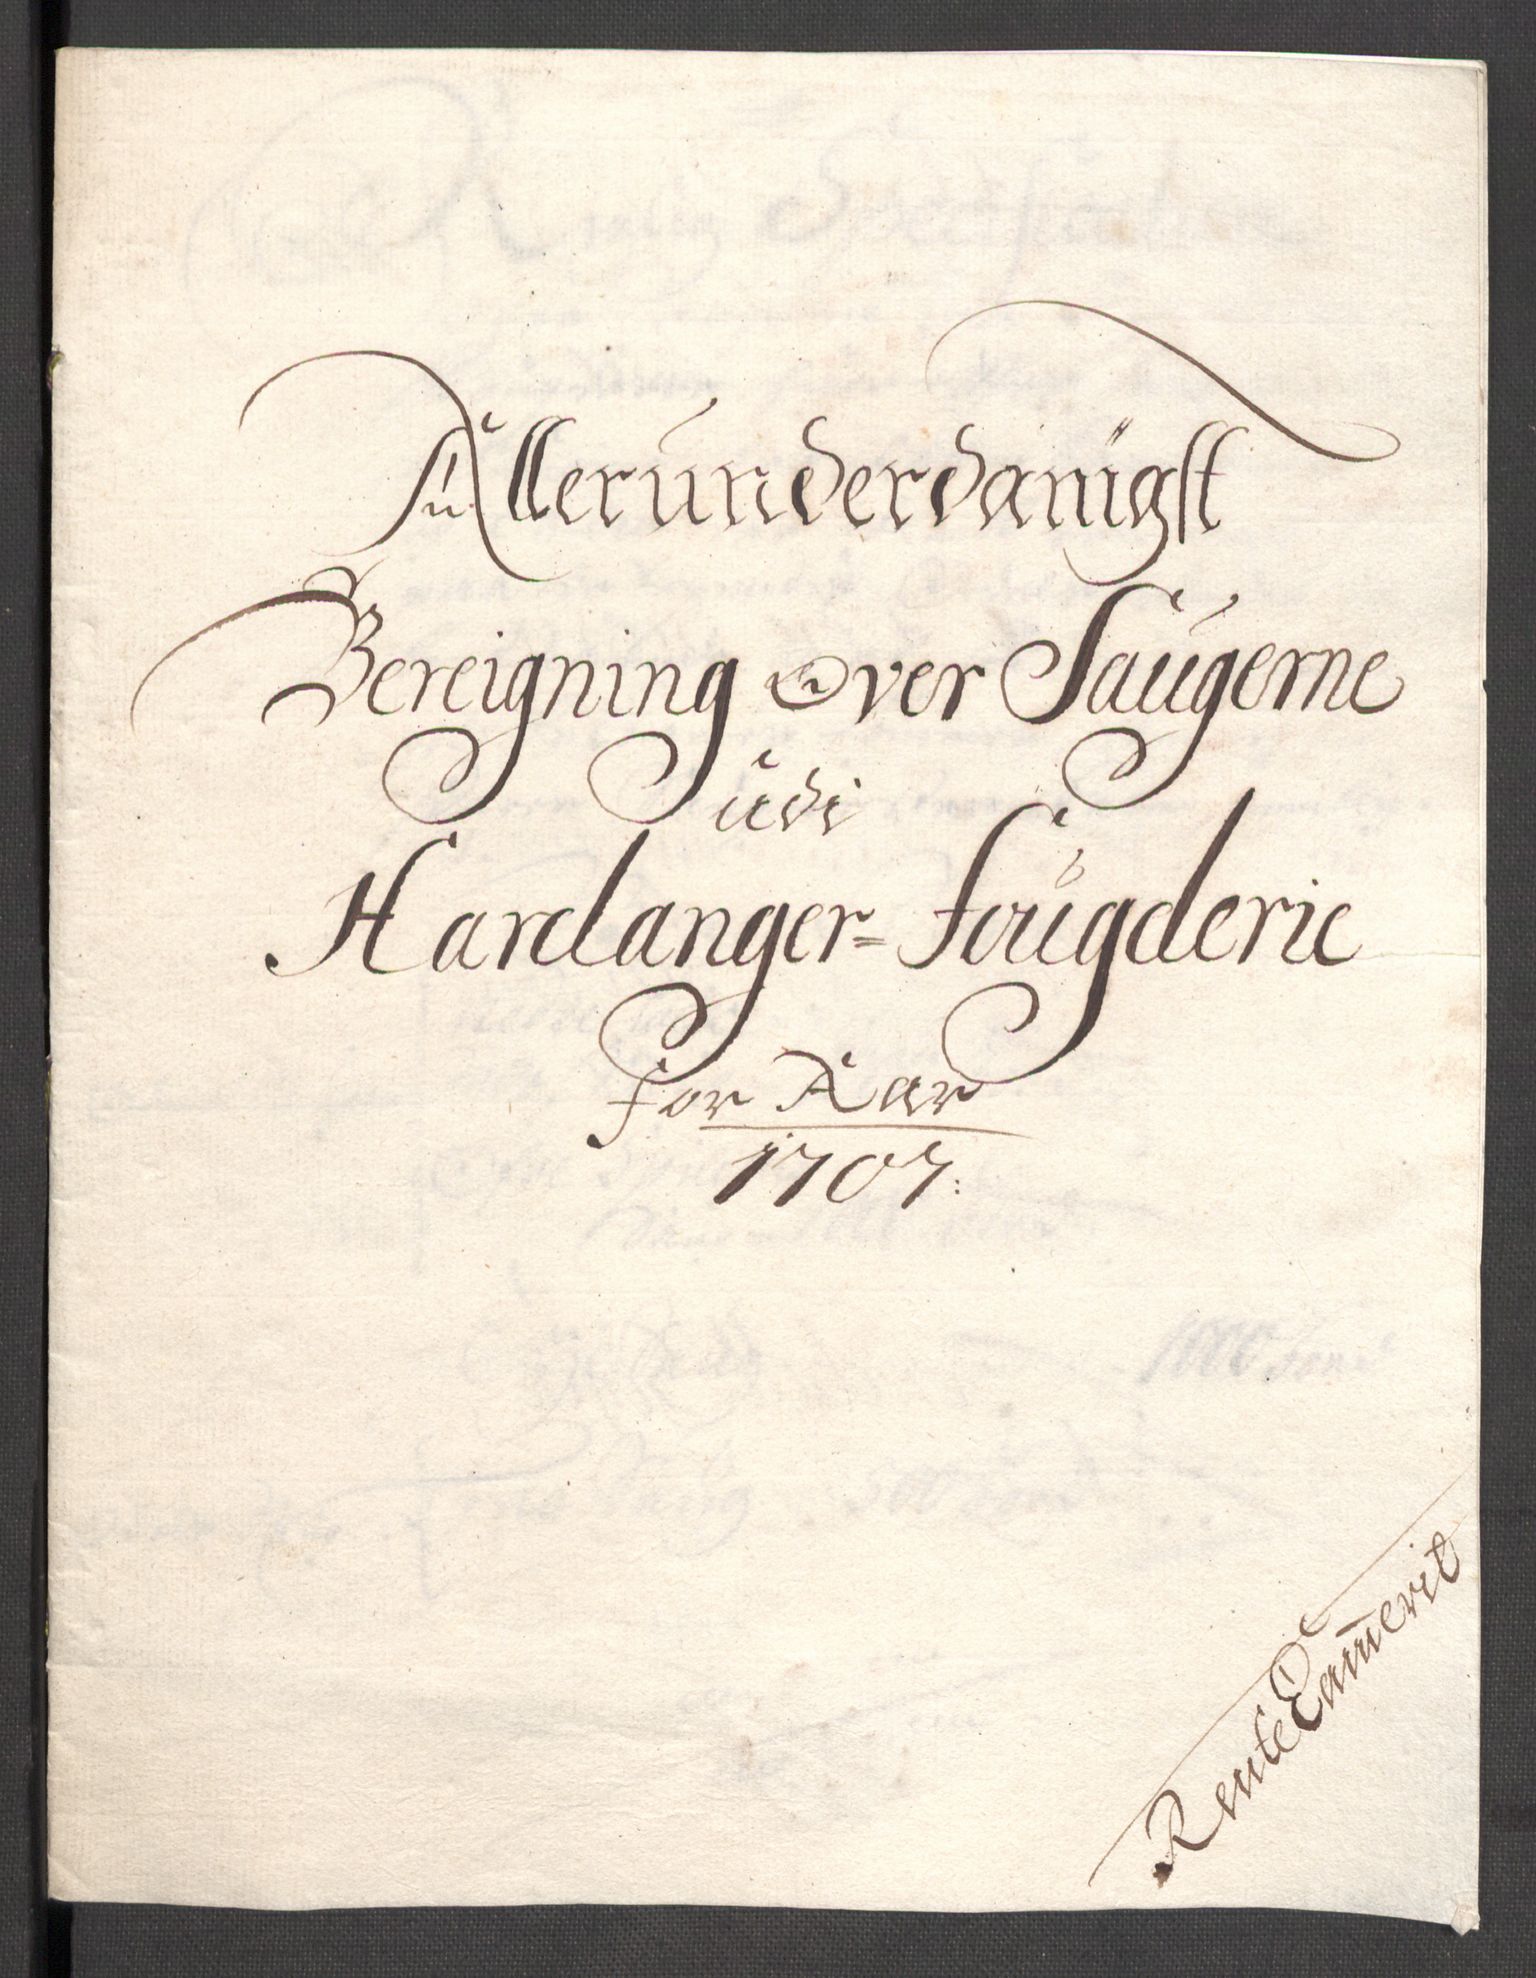 Allerunderdanigst
Bereigning over Saugerne
udi
Hardanger= Fougderie
for Aar
1707:
Rente Camerit